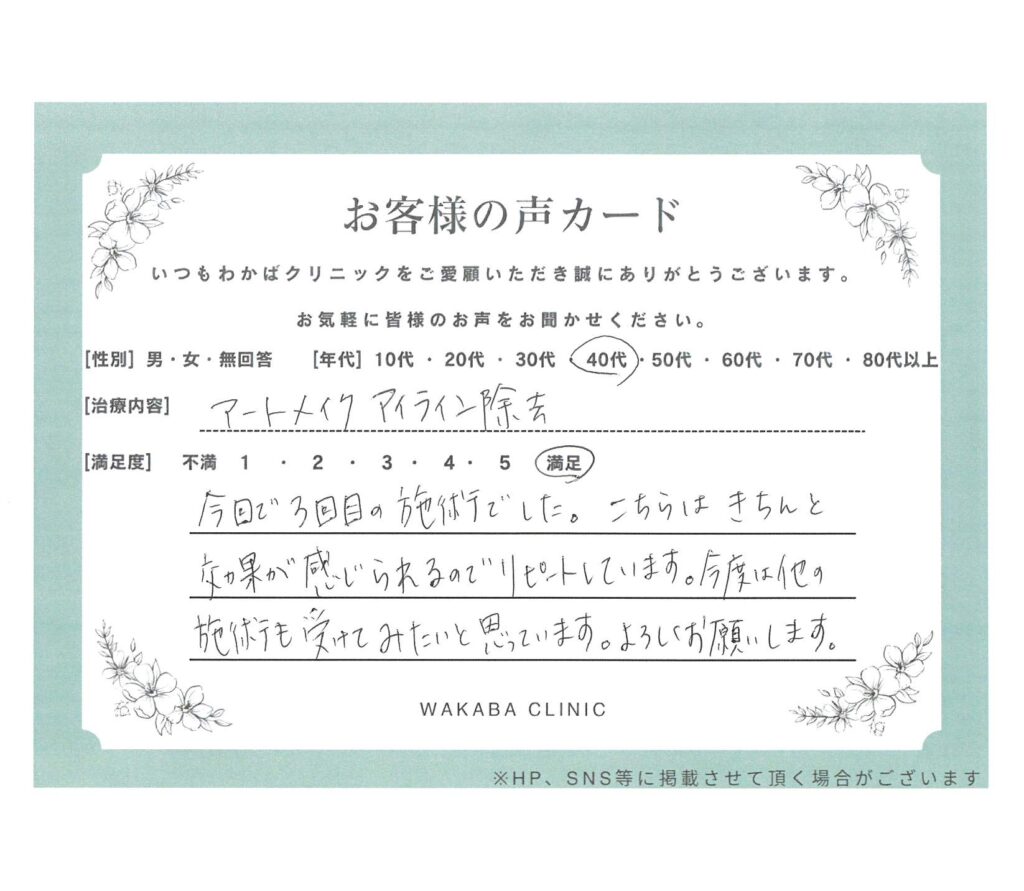 お客様の声カード
いつもわかばクリニックをご愛顧いただき誠にありがとうございます。
お気軽に皆様のお声をお聞かせください。
[性別] 男・女・無回答 [年代] 10代 ・ 20代 ・ 30代 ・ 40代 ・ 50代 ・ 60代 ・ 70代 ・ 80代以上
[治療内容] アートメイク アイライン除去
[満足度] 不満 1 ・ 2 ・ 3 ・ 4 ・ 5 満足
今回で3回目の施術でした。こちらはきちんと
効果が感じられるのでリピートしています。今度は他の
施術も受けてみたいと思っています。よろしくお願いします。
WAKABA CLINIC
※HP、SNS等に掲載させて頂く場合がございます